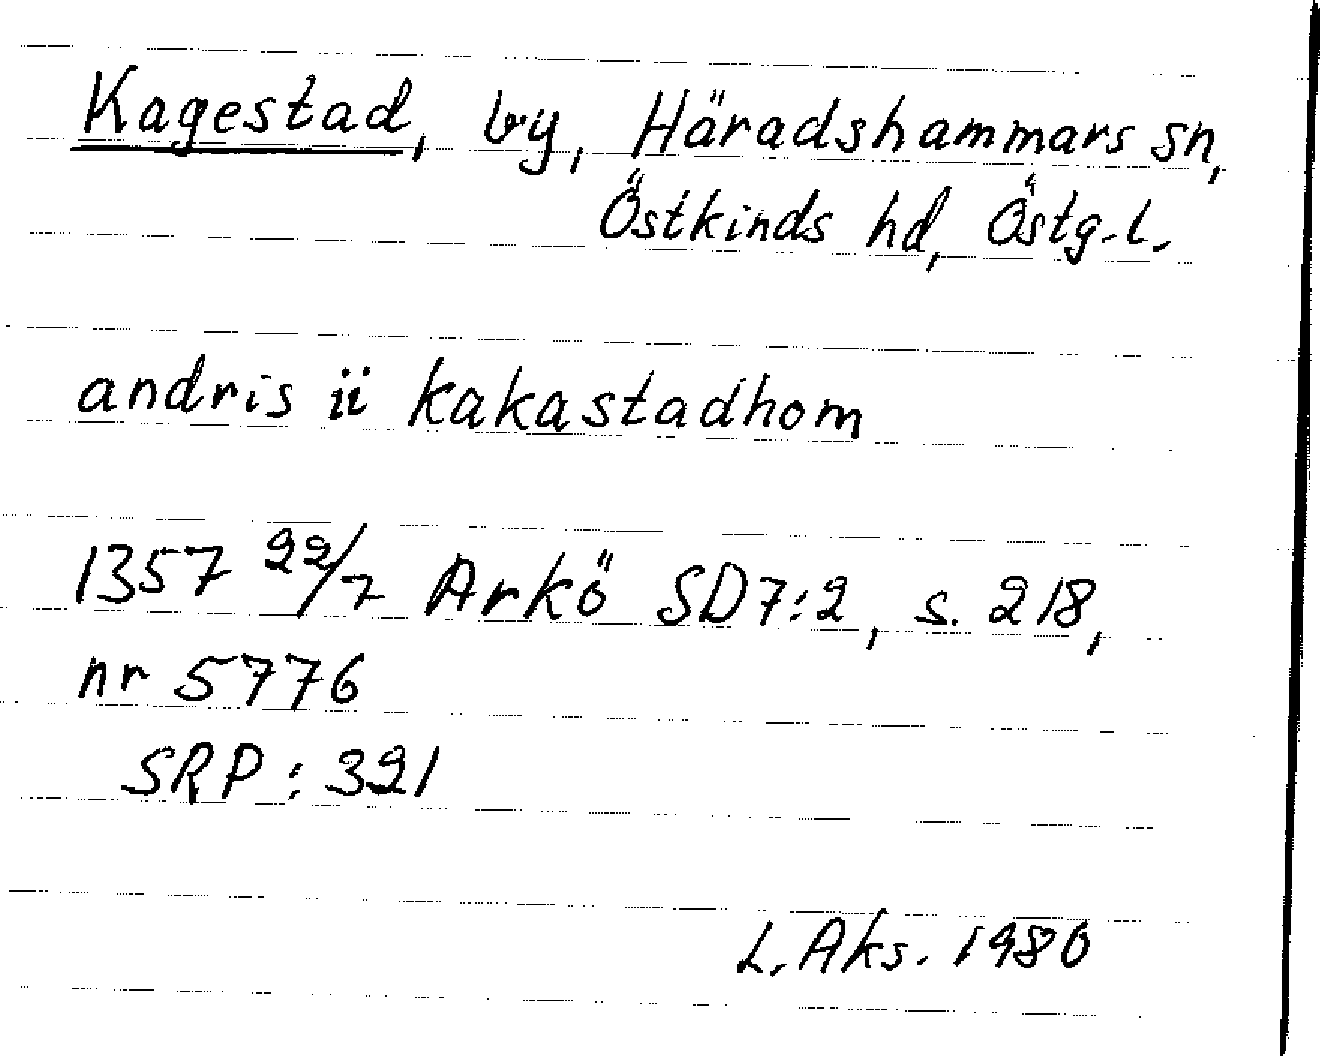 Kagestad, by, Häradshammars sn,
Östkinds hd, Östg.l.
andris ii kakastadhom
1357 22/7 Arkö SD7:2, s. 218,
nr 5776
SRP: 321
L. Aks. 1980